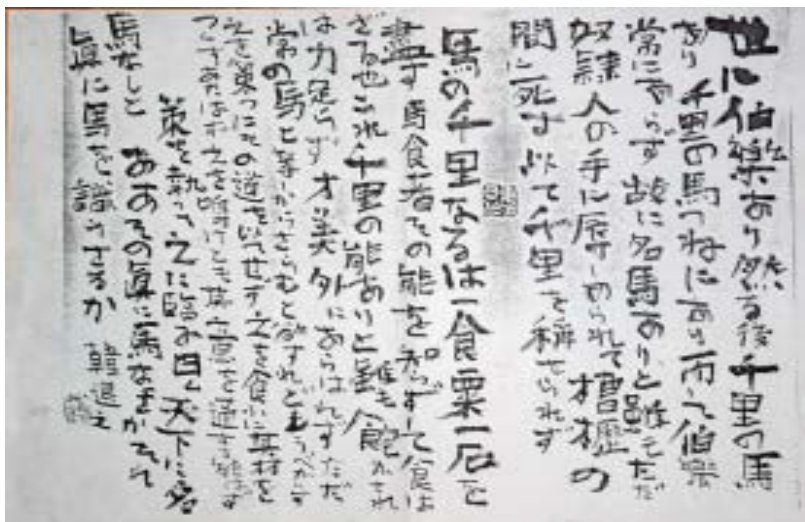 世に伯楽あり然る後千里の馬
あり 千里の馬つねにあり而して伯楽
常にあらず 故に名馬ありと雖もただ
奴隷人の手に辱しめられて槽櫪の
間に死す 以て千里を稱せられず
馬の千里なるは一食粟一石を
盡す 馬食者その能を知らずして食は
ざる也これ千里の能ありと雖も飽かされ
は力足らず才美外にあらはれずただ
常の馬と等しからむと欲すれども
之を策つにその道を以てせず之を食ふに其材を
之を鳴けども其意を通ずる能はず
策を執って之に臨み曰く天下に名
馬なしと ああその真に馬なきか
眞に馬を識らざるか 韓退之